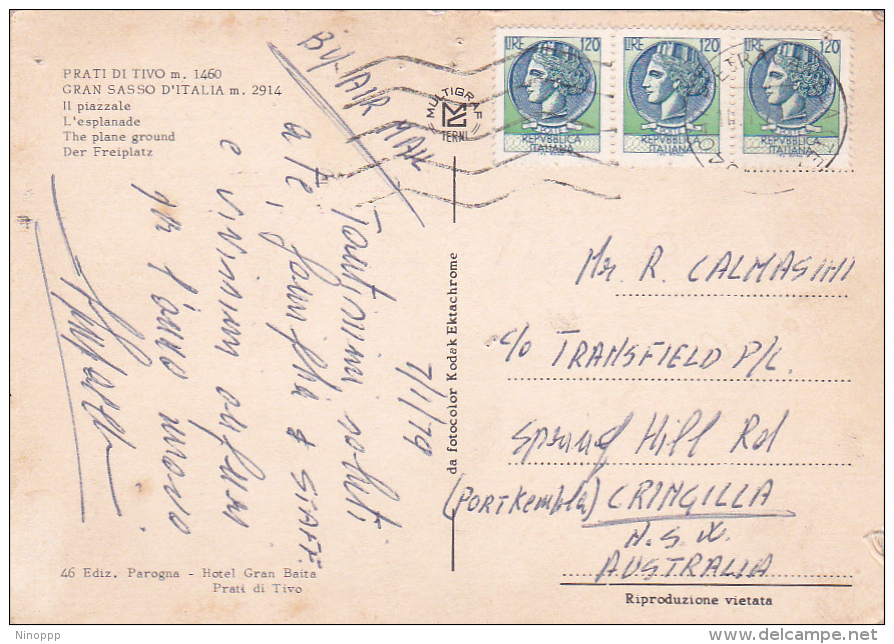 PRATI DI TIVO m. 1460
GRAN SASSO D'ITALIA m. 2914
Il piazzale
L'esplanade
The plane ground
Der Freiplatz
By AIR MAIL
MULTIGRAF
TERNI
LIRE 120
REPVBBLICA
ITALIANA
LIRE 120
REPVBBLICA
ITALIANA
LIRE 120
REPVBBLICA
ITALIANA
7/1/79
Tantissimi saluti
a te, famiglia & STAFF.
e vivissimi auguri
per l'anno nuovo
da fotocolor Kodak Ektachrome
Mr. R. CALMASINI
c/o TRANSFIELD P/L.
Spring Hill Rd
(PORT Kembla) CRINGILLA
N.S.W.
AUSTRALIA
46 Ediz. Parogna - Hotel Gran Baita
Prati di Tivo
Riproduzione vietata
Ninoppp
delcampe.net